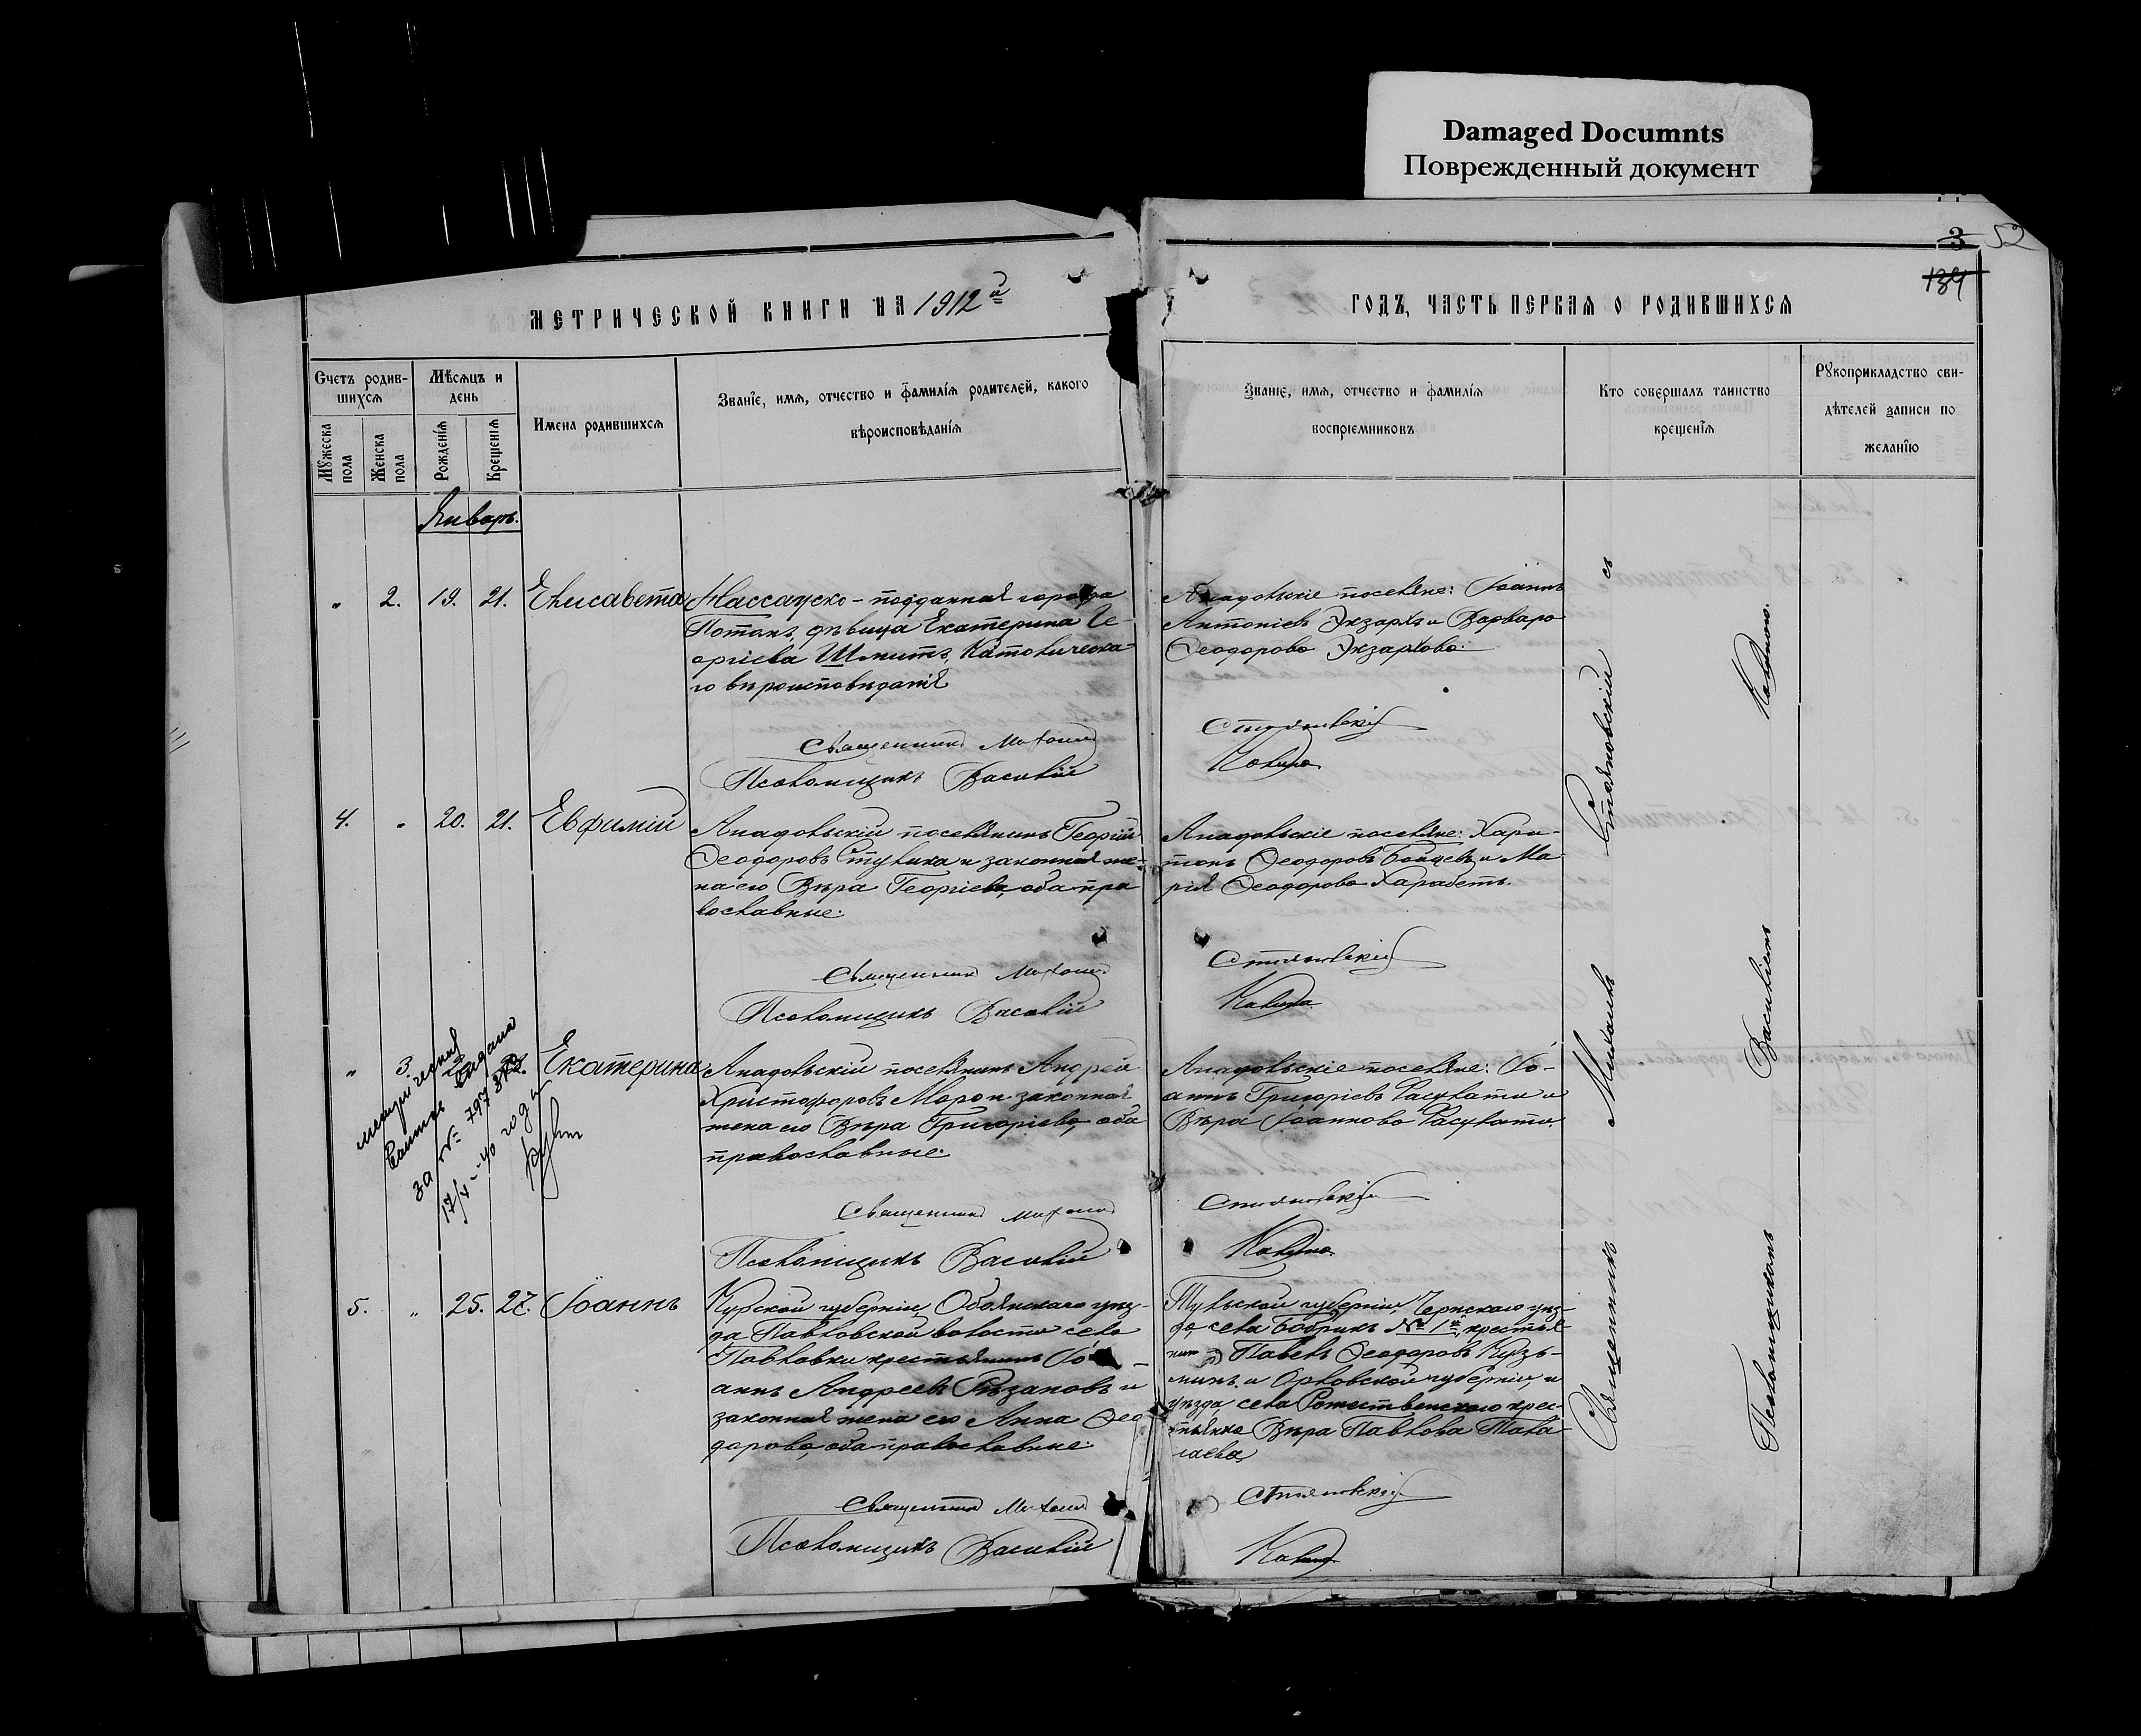 Damaged Documnts
Поврежденный документ
3 52
184
МЕТРИЧЕСКОЙ КНИГИ НА 1912й
ГОДЪ, ЧАСТЬ ПЕРВАЯ О РОДИВШИХСЯ
Счетъ родив-
шихся
Мѣсяцъ и
день
Мужеска
пола
Женска
пола
Рожденія
Крещенія
Имена родившихся
Званіе, имя, отчество и фамилія родителей, какого
вѣроисповѣданія
Званіе, имя, отчество и фамилія
воспріемниковъ
Кто совершалъ таинство
крещенія
Рукоприкладство сви-
дѣтелей записи по
желанію
Январь.
" 2. 19. 21. Елисавета
Нассауско-подданная города
дѣвица Екатерина Ге-
оргіева Шмитъ, Католическа-
го вѣроисповѣданія
Священникъ Михаилъ
Псаломщикъ Василій
Анадольскіе поселяне: Іоаннъ
Антоніевъ Экзархъ и Варвара
Ѳеодорова Экзархова.
Стояновскій
4. " 20. 21. Евфимій
Анадольскій поселянинъ Георгій
Ѳеодоровъ Стулика и законная же-
на его Вѣра Георгіева, оба пра
вославные.
Священникъ Михаилъ
Псаломщикъ Василій
Анадольскіе поселяне: Хари-
тонъ Ѳеодоровъ и Ма-
рія Ѳеодорова Харабетъ.
Стояновскій
" 3. Екатерина
метрическая
выпись выдана
за №
17/X-40 года
Анадольскій поселянинъ Андрей
Христофоровъ Мороз и законная
жена его Вѣра Григоріева, оба
православные.
Священникъ Михаилъ
Псаломщикъ Василій
Анадольскіе поселяне: Іо-
аннъ Григоріевъ и
Вѣра Іоаннова
Стояновскій
5. " 25. 27. Іоаннъ
Курской губерніи, Обоянскаго уѣз-
да Павловской волости села
Павловки крестьянинъ Іо-
аннъ Андреевъ Рѣзановъ и
законная жена его Анна Ѳео
дорова, оба православные.
Священникъ Михаилъ
Псаломщикъ Василій
Тульской губерніи, Чернскаго уѣз-
да, села Бобрикъ № 1й, крестья-
нинъ Павелъ Ѳеодоровъ Кузь-
минъ и Орловской губерніи, и
уѣзда, села Рождественскаго крес-
тьянка Вѣра Павлова
Стояновскій
Священникъ Михаилъ Стояновскій съ
Псаломщикомъ Василіемъ